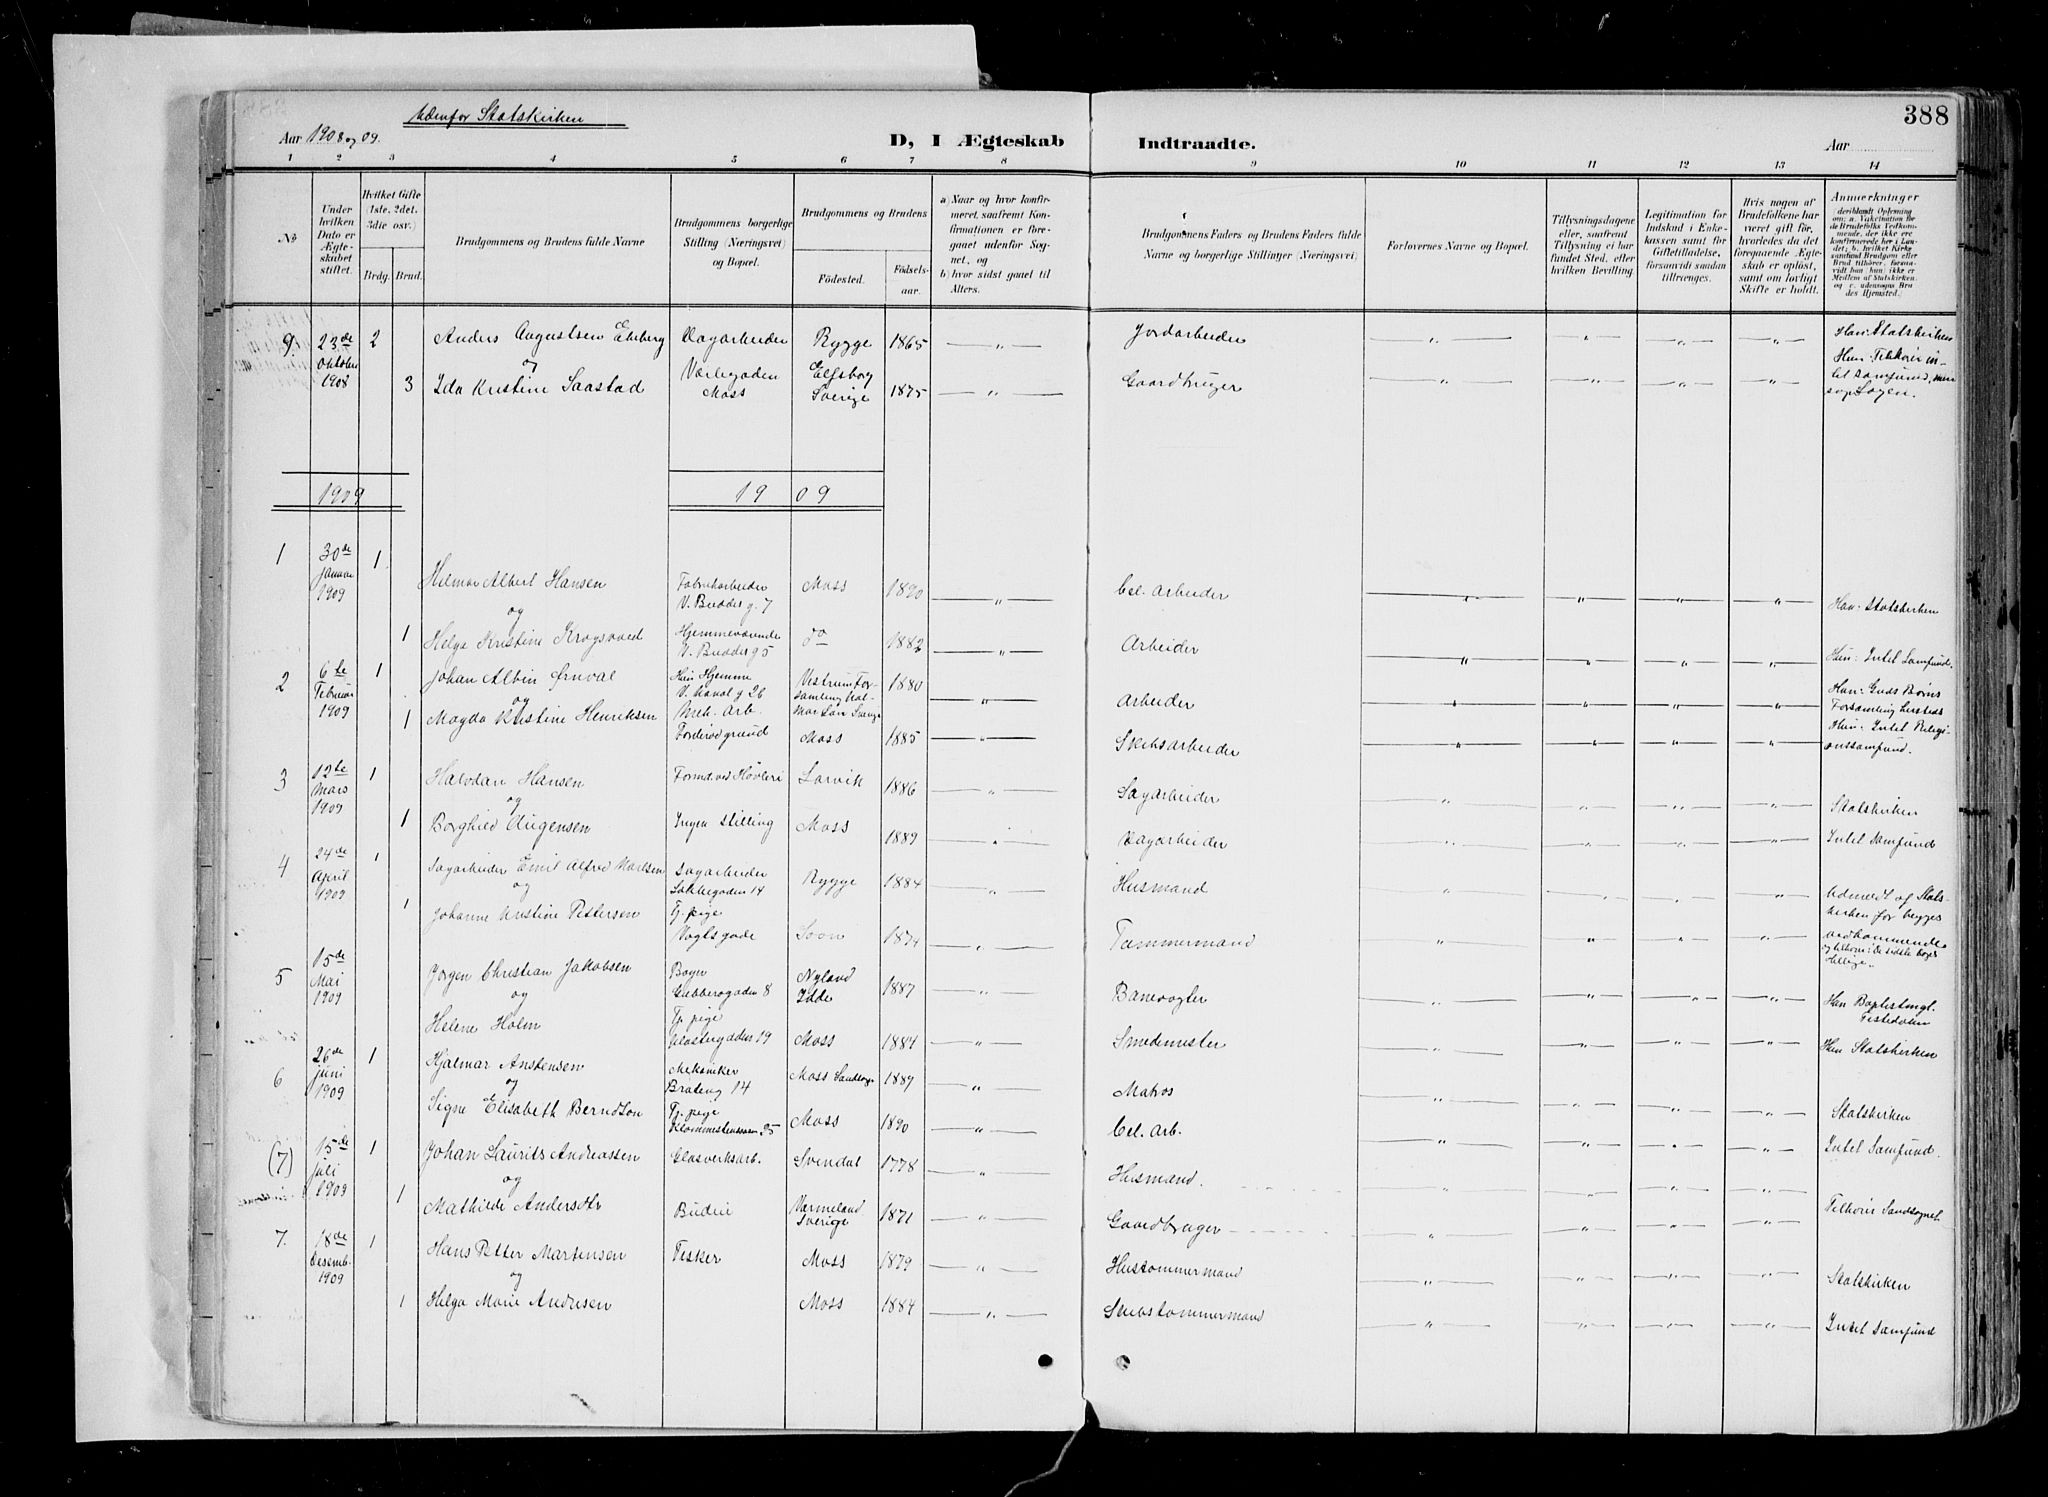 388
Udenfor Statskirken
Aar 1908 og 09.
D, I Ægteskab Indtraadte.
Aar
1 2 3 4 5 6 7 8 9 10 11 12 13 14
No
Under hvilken Dato er Ægteskabet stiftet.
Hvilket Gifte (1ste, 2det, 3die osv.)
Brdg. Brud.
Brudgommens og Brudens fulde Navne
Brudgommens borgerlige Stilling (Næringsvei) og Bopæl.
Brudgommens og Brudens
Fødested. Fødselsaar.
a) Naar og hvor konfirmeret, saafremt Konfirmationen er foregaaet udenfor Sognet, og
b) hvor sidst gaaet til Alters.
Brudgommens Faders og Brudens Faders fulde Navne og borgerlige Stillinger (Næringsvei)
Forlovernes Navne og Bopæl.
Tillysningsdagene eller, saafremt Tillysning ei har fundet Sted, efter hvilken Bevilling.
Legitimation for Indskud i Enkekassen samt for Giftetilladelse, forsaavidt saadan tiltrænges.
Hvis nogen af Brudefolkene har været gift før, hvorledes da det foregaaende Ægteskab er opløst, samt om lovligt Skifte er holdt.
Anmerkninger
(deriblandt Oplysning om: a. Vakcination for de Brudefolks Vedkommende, der ikke ere konfirmerede her i Landet; b. hvilket Kirkesamfund Brudgom eller Brud tilhører, forsaavidt han (hun) ikke er Medlem af Statskirken, og c. udensogns Brudes Hjemsted.)
9. 23de Oktober 1908 2 Anders Augustsen Ekeberg Dagarbeider Rygge 1865 Jordarbeider Han: Statskirken
og
3 Ida Kristine Saastad Værlegaden Moss Elfsborg Sverige 1875 Gaardbruger Hun: Tilhører intet samfund, men søger Logen.
1909 1909
1 30de Januar 1909 1 Hilmar Albert Hansen Fabrikarbeider V. Budder g. 7 Moss 1890 Cel. arbeider Han: Statskirken
og
1 Helga Kristine Krogsvold Hjemmeværende V. Budder g 5 do 1882 Arbeider Hun: Intet Samfund.
2 6te Februar 1909 1 Johan Albin Ørnval V. Kanal g 26 Mek. Arb. 1880 Arbeider Han: Guds Børns Forsamling
og
1 Magda Kristine Henriksen Moss 1885 Skibsarbeider Hun: Intet Religionssamfund.
3 12te Mars 1909 1 Halvdan Hansen Formd. ved Høvleri Larvik 1886 Sagarbeider Statskirken
og
1 Borghild Augensen Ingen stilling Moss 1889 Dagarbeider Intet Samfund
4 24de April 1909 1 Sagarbeider Emil Alfred Karlsen Sagarbeider Rygge 1884 Husmand Udmeldt af Statskirken for begges vedkommende og tilhører: de sidste dages Hellige.
og
1 Johanne Kristine Pettersen Tj. pige Vogtsgade Soon 1874 Tømmermand
5 15de Mai 1909 Jørgen Christian Jakobsen Bager 8 Nyland Idde 1887 Banevogter Han Baptistmgl. Tistedalen
og
Helene Holm Tj. pige Klostergaden 19 Moss 1884 Smedmester Hun Statskirken
6 26de Juni 1909 1 Hjalmar Anstensen Mekaniker Brateng 14 Moss Landsogn 1889 Matros Statskirken
og
Signe Elisabeth Berndtson Tj. pige 25 Moss 1890 Cel. arb. Intet Samfund.
(7) 15de Juli 1909 1 Johan Laurits Andreassen Glasverksarb. Svendal 1778 Husmand.
og
1 Mathilde Andersdtr Budeie Værmeland Sverige 1871 Gaardbruger Tilhører Landsognet
7. 18de Desemb. 1909 1 Hans Petter Martensen Fisker Moss 1879 Hustømmermand Statskirken
og
1 Helga Marie Andresen Moss 1884 Skibstømmermand Intet Samfund